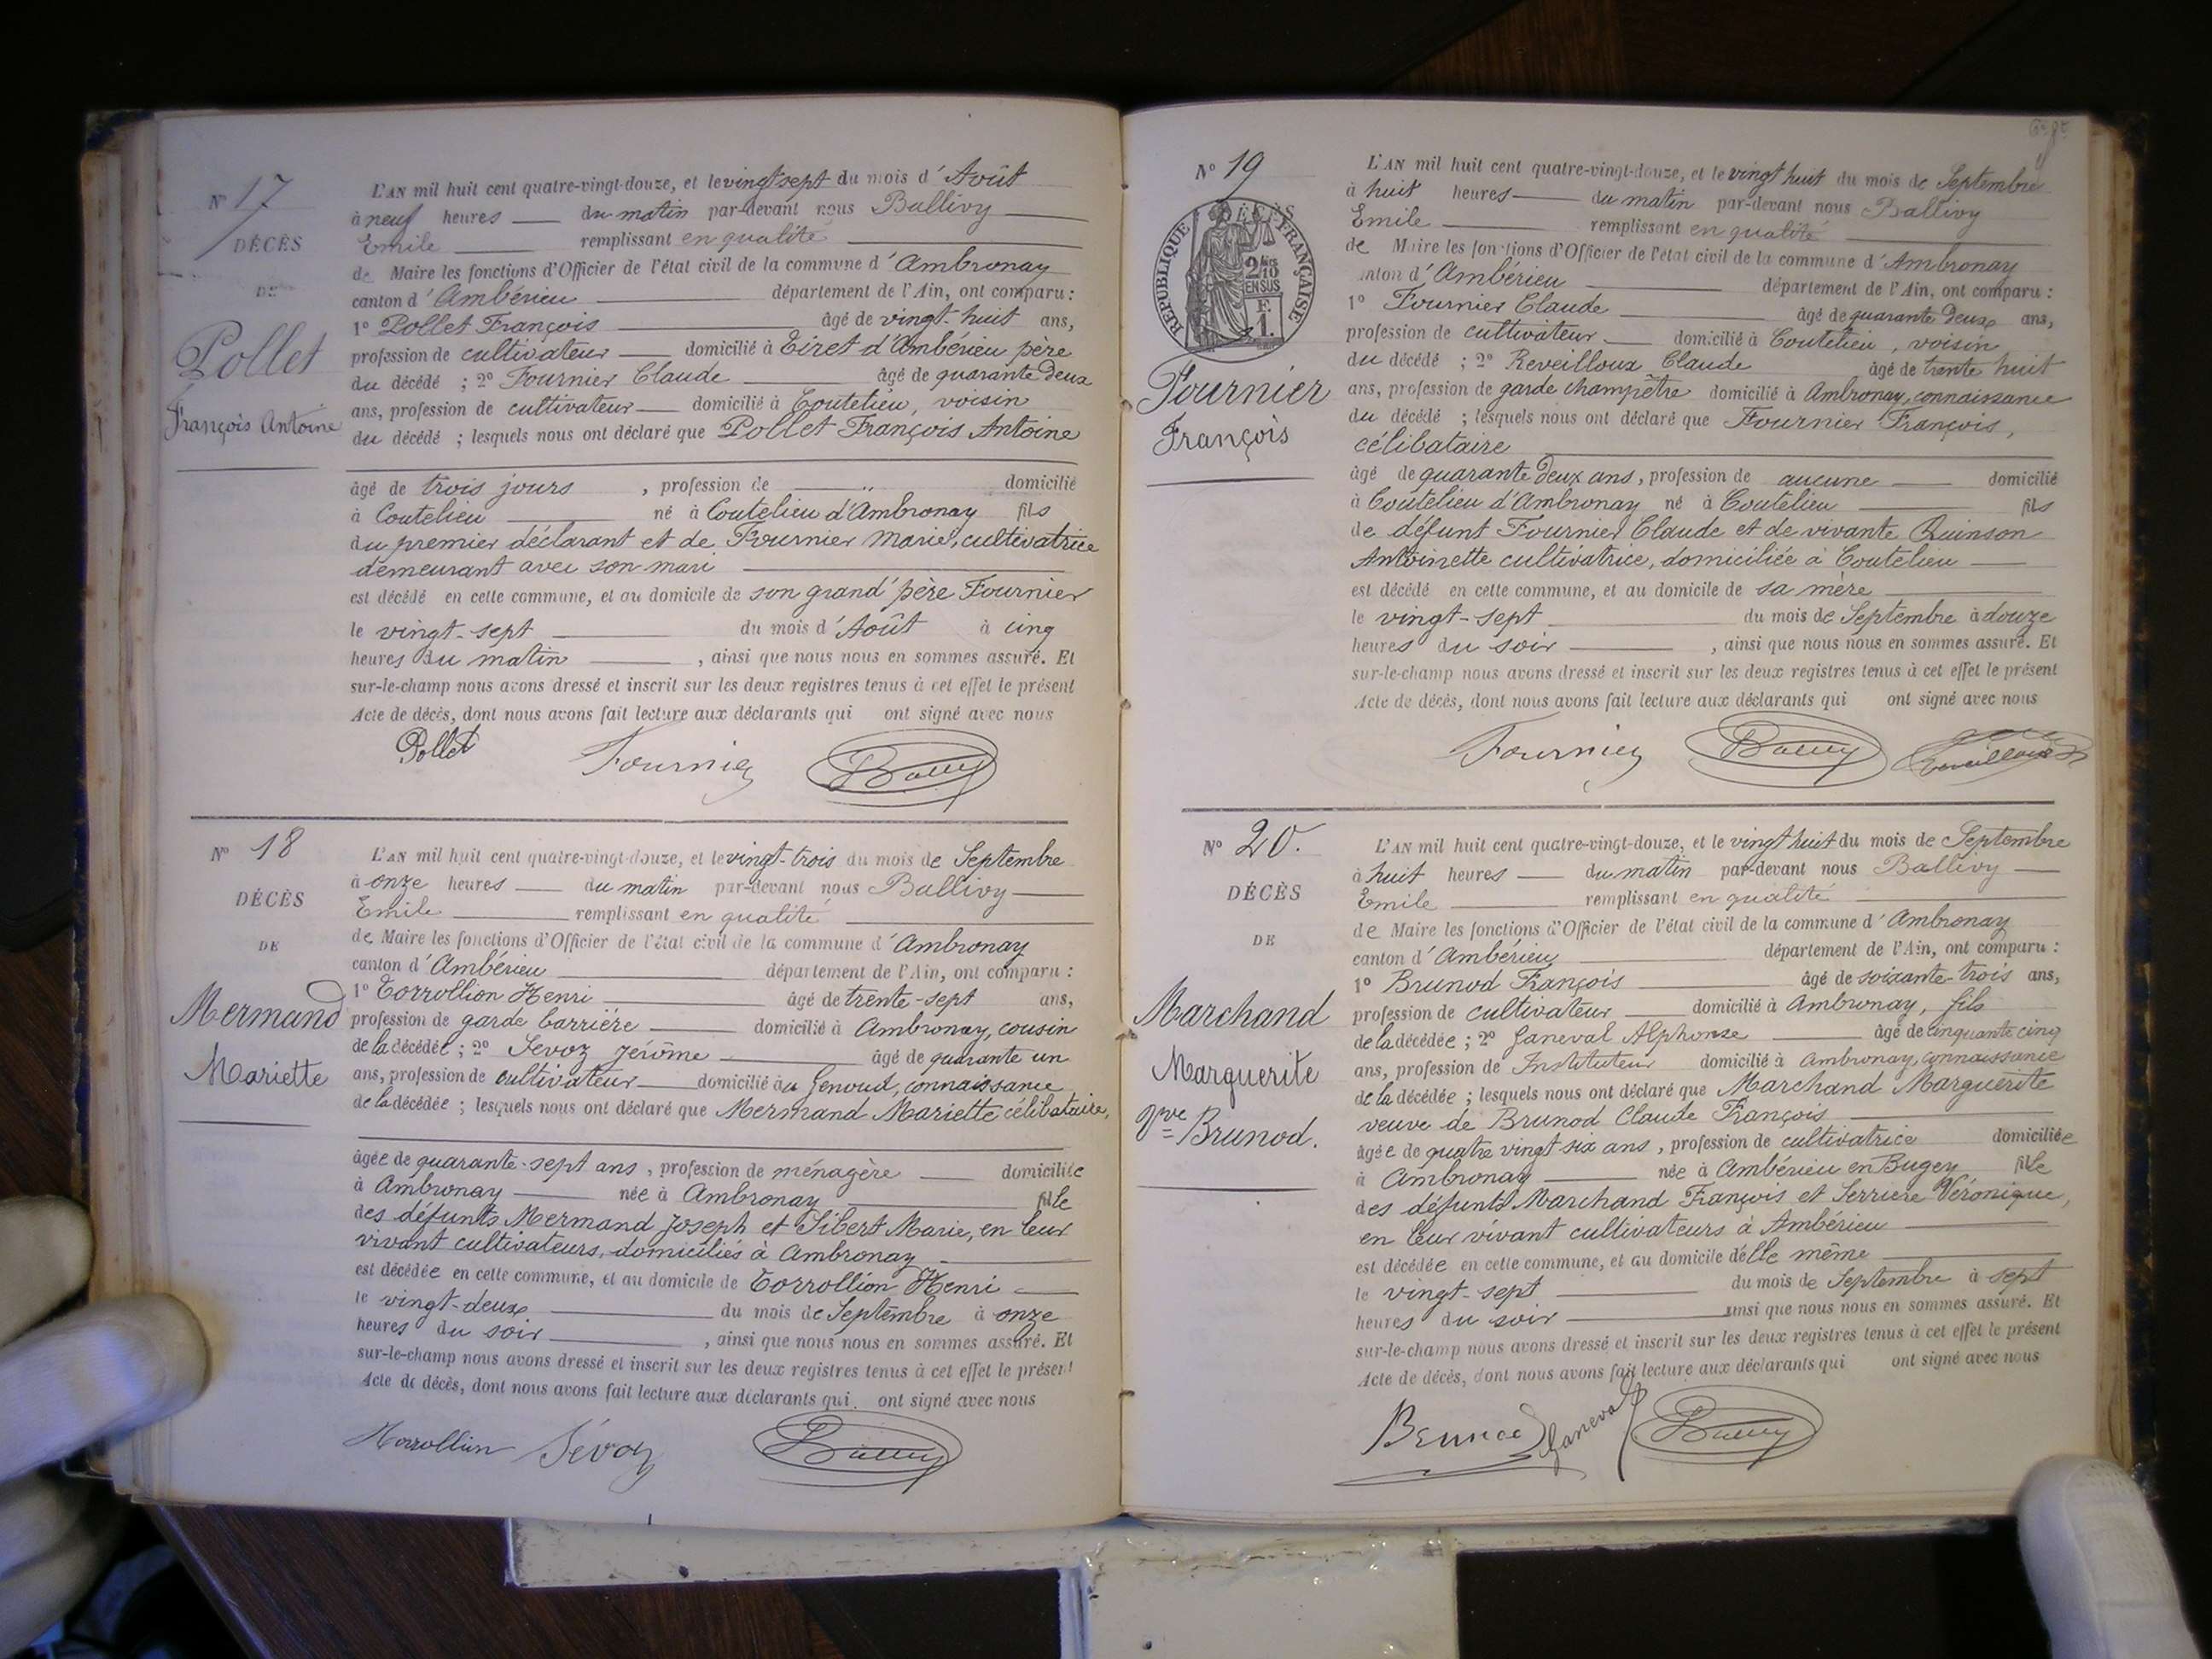 N° 17
DÉCÈS
DE
Pollet
François Antoine
L'AN mil huit cent quatre-vingt-douze, et le vingt sept du mois d'Août
à neuf heures du matin par-devant nous Ballivy
Emile remplissant en qualité
de Maire les fonctions d'Officier de l'état civil de la commune d'Ambronay
canton d'Ambérieu département de l'Ain, ont comparu :
1° Pollet François âgé de vingt-huit ans,
profession de cultivateur domicilié à Tiret d'Ambérieu père
du décédé ; 2° Fournier Claude âgé de quarante deux
ans, profession de cultivateur domicilié à Coutelieu, voisin
du décédé ; lesquels nous ont déclaré que Pollet François Antoine
âgé de trois jours , profession de " domicilié
à Coutelieu né à Coutelieu d'Ambronay fils
du premier déclarant et de Fournier Marie, cultivatrice
demeurant avec son mari
est décédé en cette commune, et au domicile de son grand'père Fournier
le vingt-sept du mois d'Août à cinq
heures du matin , ainsi que nous nous en sommes assuré. Et
sur-le-champ nous avons dressé et inscrit sur les deux registres tenus à cet effet le présent
Acte de décès, dont nous avons fait lecture aux déclarants qui ont signé avec nous
Pollet Fournier Ballivy
N° 18
DÉCÈS
DE
Mermand
Mariette
L'AN mil huit cent quatre-vingt-douze, et le vingt-trois du mois de Septembre
à onze heures du matin par-devant nous Ballivy
Emile remplissant en qualité
de Maire les fonctions d'Officier de l'état civil de la commune d'Ambronay
canton d'Ambérieu département de l'Ain, ont comparu :
1° Torrollion Henri âgé de trente-sept ans,
profession de garde barrière domicilié à Ambronay, cousin
de la décédée ; 2° Sevoz Jérôme âgé de quarante un
ans, profession de cultivateur domicilié au Genoud, connaissance
de la décédée ; lesquels nous ont déclaré que Mermand Mariette célibataire,
âgée de quarante-sept ans , profession de ménagère domiciliée
à Ambronay née à Ambronay fille
des défunts Mermand Joseph et Sibert Marie, en leur
vivant cultivateurs, domiciliés à Ambronay
est décédée en cette commune, et au domicile de Torrollion Henri
le vingt-deux du mois de Septembre à onze
heures du soir , ainsi que nous nous en sommes assuré. Et
sur-le-champ nous avons dressé et inscrit sur les deux registres tenus à cet effet le présent
Acte de décès, dont nous avons fait lecture aux déclarants qui ont signé avec nous
Torrollion Sévoz Ballivy
N° 19
DÉCÈS
RÉPUBLIQUE FRANÇAISE
2/10
EN SUS
F.
1.
Fournier
François
L'AN mil huit cent quatre-vingt-douze, et le vingt huit du mois de Septembre
à huit heures du matin par-devant nous Ballivy
Emile remplissant en qualité
de Maire les fonctions d'Officier de l'état civil de la commune d'Ambronay
canton d'Ambérieu département de l'Ain, ont comparu :
1° Fournier Claude âgé de quarante deux ans,
profession de cultivateur domicilié à Coutelieu, voisin
du décédé ; 2° Reveilloux Claude âgé de trente huit
ans, profession de garde champêtre domicilié à Ambronay, connaissance
du décédé ; lesquels nous ont déclaré que Fournier François,
célibataire
âgé de quarante deux ans, profession de aucune domicilié
à Coutelieu d'Ambronay né à Coutelieu fils
de défunt Fournier Claude et de vivante Quinson
Antoinette cultivatrice, domiciliée à Coutelieu
est décédé en cette commune, et au domicile de sa mère
le vingt-sept du mois de Septembre à douze
heures du soir , ainsi que nous nous en sommes assuré. Et
sur-le-champ nous avons dressé et inscrit sur les deux registres tenus à cet effet le présent
Acte de décès, dont nous avons fait lecture aux déclarants qui ont signé avec nous
Fournier Ballivy Reveilloux
N° 20.
DÉCÈS
DE
Marchand
Marguerite
Vve Brunod.
L'AN mil huit cent quatre-vingt-douze, et le vingt huit du mois de Septembre
à huit heures du matin par-devant nous Ballivy
Emile remplissant en qualité
de Maire les fonctions d'Officier de l'état civil de la commune d'Ambronay
canton d'Ambérieu département de l'Ain, ont comparu :
1° Brunod François âgé de soixante-trois ans,
profession de cultivateur domicilié à Ambronay, fils
de la décédée ; 2° Ganeval Alphonse âgé de cinquante cinq
ans, profession de Instituteur domicilié à Ambronay, connaissance
de la décédée ; lesquels nous ont déclaré que Marchand Marguerite
veuve de Brunod Claude François
âgée de quatre vingt six ans , profession de cultivatrice domiciliée
à Ambronay née à Ambérieu en Bugey fille
des défunts Marchand François et Serriere Véronique,
en leur vivant cultivateurs à Ambérieu
est décédée en cette commune, et au domicile d'elle même
le vingt-sept du mois de Septembre à sept
heures du soir ainsi que nous nous en sommes assuré. Et
sur-le-champ nous avons dressé et inscrit sur les deux registres tenus à cet effet le présent
Acte de décès, dont nous avons fait lecture aux déclarants qui ont signé avec nous
Brunod Ganeval Ballivy